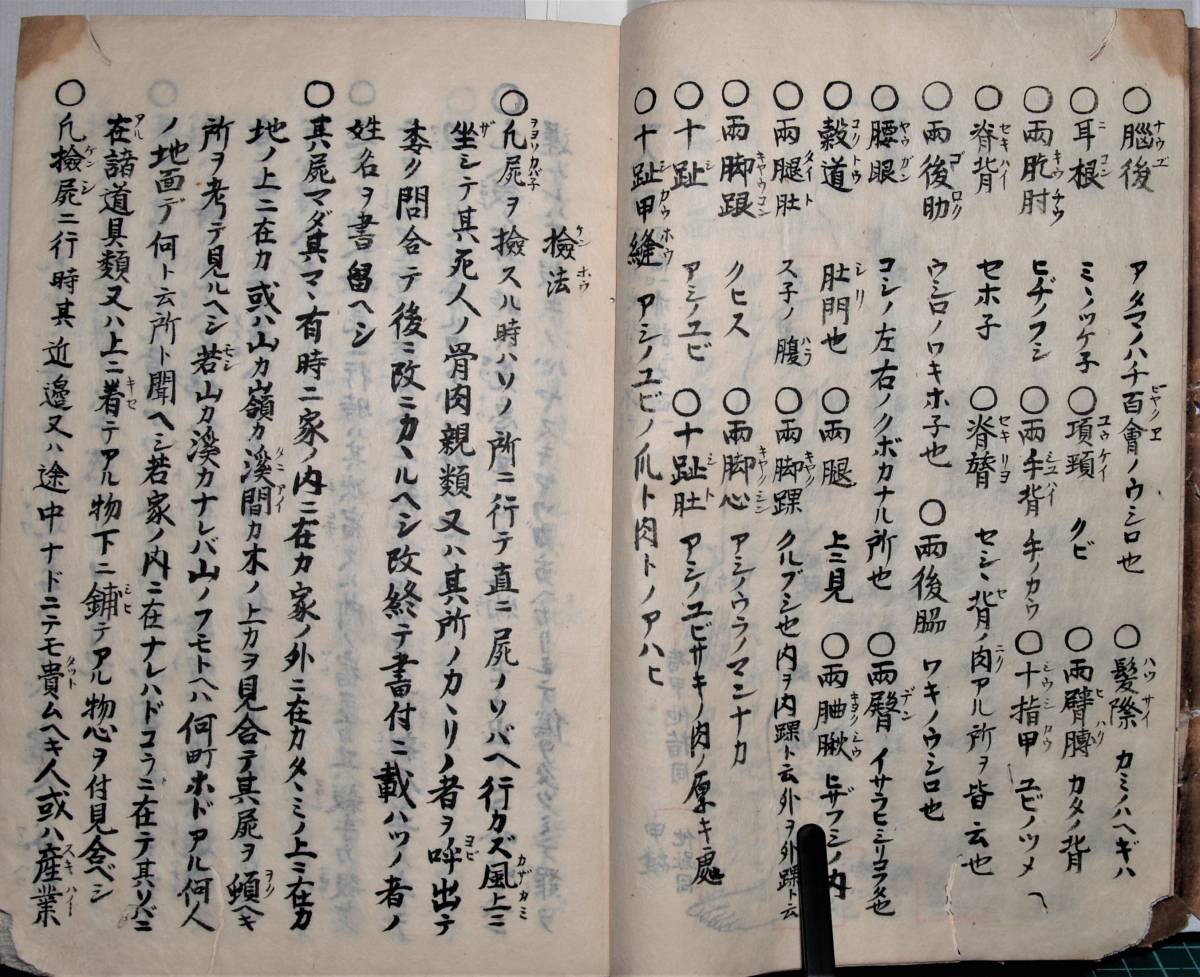 ○腦後 アタマノハチ百會ノウシロ也 ○髮際 カミノハヘギハ
○耳根 ミミツケ子 ○項頸 クビ ○兩臂膊 カタノ背
○兩肐肘 ヒヂノフシ ○兩手背 手ノカウ ○十指甲 ユビノツメ
○脊背 セホ子 ○脊膂 セシヽ背ノ肉アル所ヲ皆云也
○兩後肋 ウシロノワキホ子也 ○兩後脇 ワキノウシロ也
○腰眼 コシノ左右ノクボカナル所也 ○兩臀 イサラヒシリコブタ也
○穀道 肚門也 ○兩腿 上ニ見 ○兩䏔腴 ヒザフシノ内
○兩腿肚 ス子ノ腹 ○兩脚踝 クルブシ也内ヲ内踝ト云外ヲ外踝ト云
○兩脚跟 クヒス ○兩脚心 アシノウラノマンナカ
○十趾 アシノユビ ○十趾肚 アシノユビサキノ肉ノ厚キ處
○十趾甲縫 アシノユビノ爪ト肉トノアハヒ
檢法
○凡屍ヲ撿スル時ハソノ所ニ行テ直ニ屍ノソバヘ行カズ風上ニ
坐シテ其死人ノ骨肉親類又ハ其所ノカヽリノ者ヲ呼出テ
委ク問合テ後ニ改ニカヽルヘシ改終テ書付ニ載ハツノ者ノ
姓名ヲ書留ヘシ
○其屍マダ其マヽ有時ニ家ノ内ニ在カ家ノ外ニ在カタヽミノ上ニ在カ
地ノ上ニ在カ或ハ山カ嶺カ溪間カ木ノ上カヲ見合テ其屍ヲ頓ヘキ
所ヲ考テ見ルヘシ若山カ溪カナレバ山ノフモトヘハ何町ホドアル何人
ノ地面デ何ト云所ト聞ヘシ若家ノ内ニ在ナレハドコラニ在テ其ソバニ
在諸道具類又ハ上ニ着テアル物下ニ鋪テアル物心ヲ付見合ベシ
○凡撿屍ニ行時其近邊又ハ途中ナドニテモ貴ムヘキ人或ハ産業